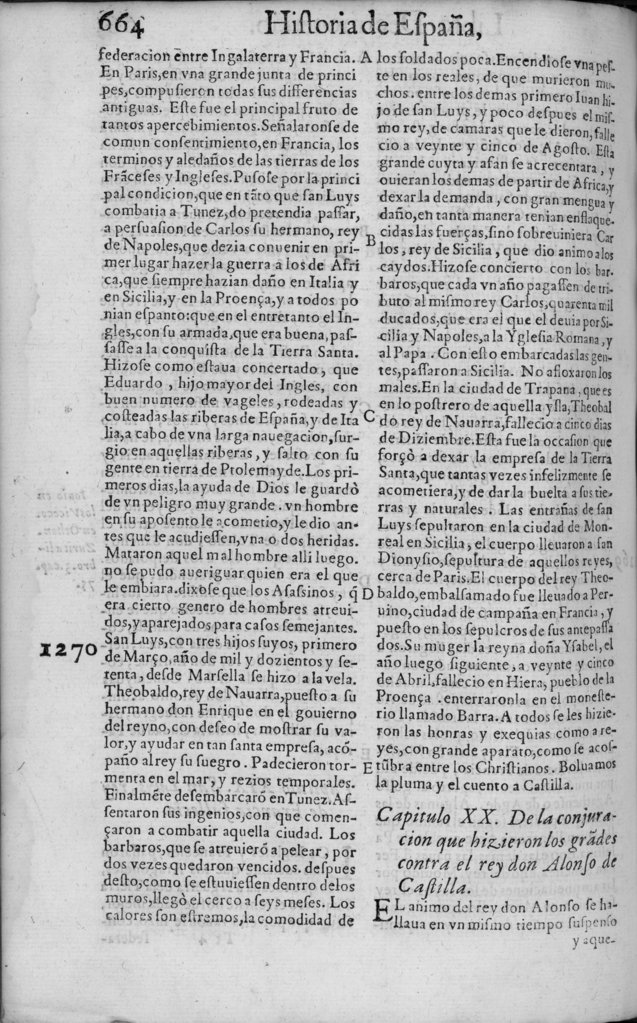 664 Historia de España,
federacion entre Ingalaterra y Francia.
En Paris, en vna grande junta de princi
pes, compusieron todas sus differencias
antiguas. Este fue el principal fruto de
tantos apercebimientos. Señalaronse de
comun consentimiento, en Francia, los
terminos y aledaños de las tierras de los
Frãceses y Ingleses. Pusose por la princi
pal condicion, que en tãto que san Luys
combatia a Tunez, do pretendia passar,
a persuasion de Carlos su hermano, rey
de Napoles, que dezia conuenir en pri-
mer lugar hazer la guerra a los de Afri
ca, que siempre hazian daño en Italia y
en Sicilia, y en la Proença, y a todos po
nian espanto: que en el entretanto el In-
gles, con su armada, que era buena, pas-
sasse a la conquista de la Tierra Santa.
Hizose como estaua concertado, que
Eduardo, hijo mayor del Ingles, con
buen numero de vageles, rodeadas y
costeadas las riberas de España, y de Ita
lia, a cabo de vna larga nauegacion, sur-
gio en aquellas riberas, y salto con su
gente en tierra de Ptolemayde. Los pri-
meros dias, la ayuda de Dios le guardò
de vn peligro muy grande. vn hombre
en su aposento le acometio, y le dio an-
tes que le acudiessen, vna o dos heridas.
Mataron aquel mal hombre alli luego.
no se pudo aueriguar quien era el que
le embiara. dixose que los Asassinos, q̃
era cierto genero de hombres atreui-
dos, y aparejados para casos semejantes.
1270 San Luys, con tres hijos suyos, primero
de Março, año de mil y dozientos y se-
tenta, desde Marsella se hizo a la vela.
Theobaldo, rey de Nauarra, puesto a su
hermano don Enrique en el gouierno
del reyno, con deseo de mostrar su va-
lor, y ayudar en tan santa empresa, acõ-
paño al rey su suegro. Padecieron tor-
menta en el mar, y rezios temporales.
Finalmẽte desembarcarõ en Tunez. As-
sentaron sus ingenios, con que comen-
çaron a combatir aquella ciudad. Los
barbaros, que se atreuierõ a pelear, por
dos vezes quedaron vencidos. despues
desto, como se estuuiessen dentro de los
muros, llegò el cerco a seys meses. Los
calores son estremos, la comodidad de
A los soldados poca. Encendiose vna pes-
te en los reales, de que murieron mu-
chos. entre los demas primero Iuan hi-
jo de san Luys, y poco despues el mis-
mo rey, de camaras que le dieron, falle
cio a veynte y cinco de Agosto. Esta
grande cuyta y afan se acrecentara, y
ouieran los demas de partir de Africa, y
dexar la demanda, con gran mengua y
daño, en tanta manera tenian enflaque-
cidas las fuerças, sino sobreuiniera Car
B los, rey de Sicilia, que dio animo a los
caydos. Hizose concierto con los bar-
baros, que cada vn año pagassen de tri-
buto al mismo rey Carlos, quarenta mil
ducados, que era el que el deuia por Si-
cilia y Napoles, a la Yglesia Romana, y
al Papa. Con esto embarcadas las gen-
tes, passaron a Sicilia. No afloxaron los
males. En la ciudad de Trapana, que es
en lo postrero de aquella ysla, Theobal
C do rey de Nauarra, fallecio a cinco dias
de Diziembre. Esta fue la occasion que
forçò a dexar la empresa de la Tierra
Santa, que tantas vezes infelizmente se
acometiera, y de dar la buelta a sus tie-
rras y naturales. Las entrañas de san
Luys sepultaron en la ciudad de Mon-
real en Sicilia, el cuerpo lleuaron a san
Dionysio, sepultura de aquellos reyes,
cerca de Paris. El cuerpo del rey Theo-
D baldo, embalsamado fue lleuado a Per-
uino, ciudad de campaña en Francia, y
puesto en los sepulcros de sus antepassa
dos. Su muger la reyna doña Ysabel, el
año luego siguiente, a veynte y cinco
de Abril, fallecio en Hiera, pueblo de la
Proença. enterraronla en el moneste-
rio llamado Barra. A todos se les hizie-
ron las honras y exequias como a re-
yes, con grande aparato, como se acos-
E tũbra entre los Christianos. Boluamos
la pluma y el cuento a Castilla.
Capitulo XX. De la conjura-
cion que hizieron los grãdes
contra el rey don Alonso de
Castilla.
EL animo del rey don Alonso se ha-
llaua en vn mismo tiempo suspenso
y aque-